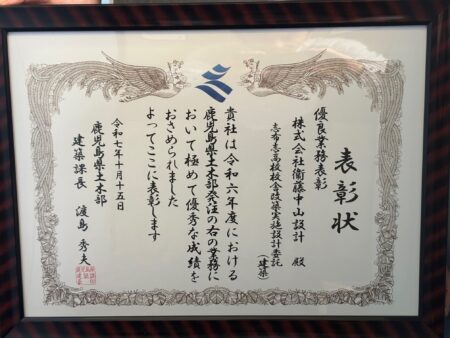 表彰状
優良業務表彰
株式会社衞藤中山設計 殿
志布志高校校舎改築実施設計委託
(建築)
貴社は令和六年度における
鹿児島県土木部発注の右の業務に
おいて極めて優秀な成績を
おさめられました
よってここに表彰します
令和七年十月十五日
鹿児島県土木部
建築課長 渡島秀夫